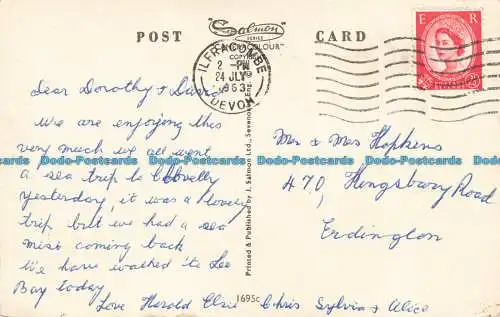 POST
"Salmon"
SERIES
CARD
E R
ILFRACOMBE
2 - PM
24 JLY
1963
DEVON
Dear Dorothy & David
We are enjoying this
very much we all went
a sea trip to Clovelly
yesterday, it was a lovely
trip but we had a sea
mist coming back
We have walked to Lee
Bay today
Love Harold Elsie Chris Sylvia & Alice
Mr & Mrs Hopkins
470, Kingsbury Road
Erdington
Printed & Published by J. Salmon Ltd., Sevenoaks, Eng.
1695c
Dodo-Postcards Dodo-Postcards Dodo-Postcards Dodo-Postcards Dodo-Postcards